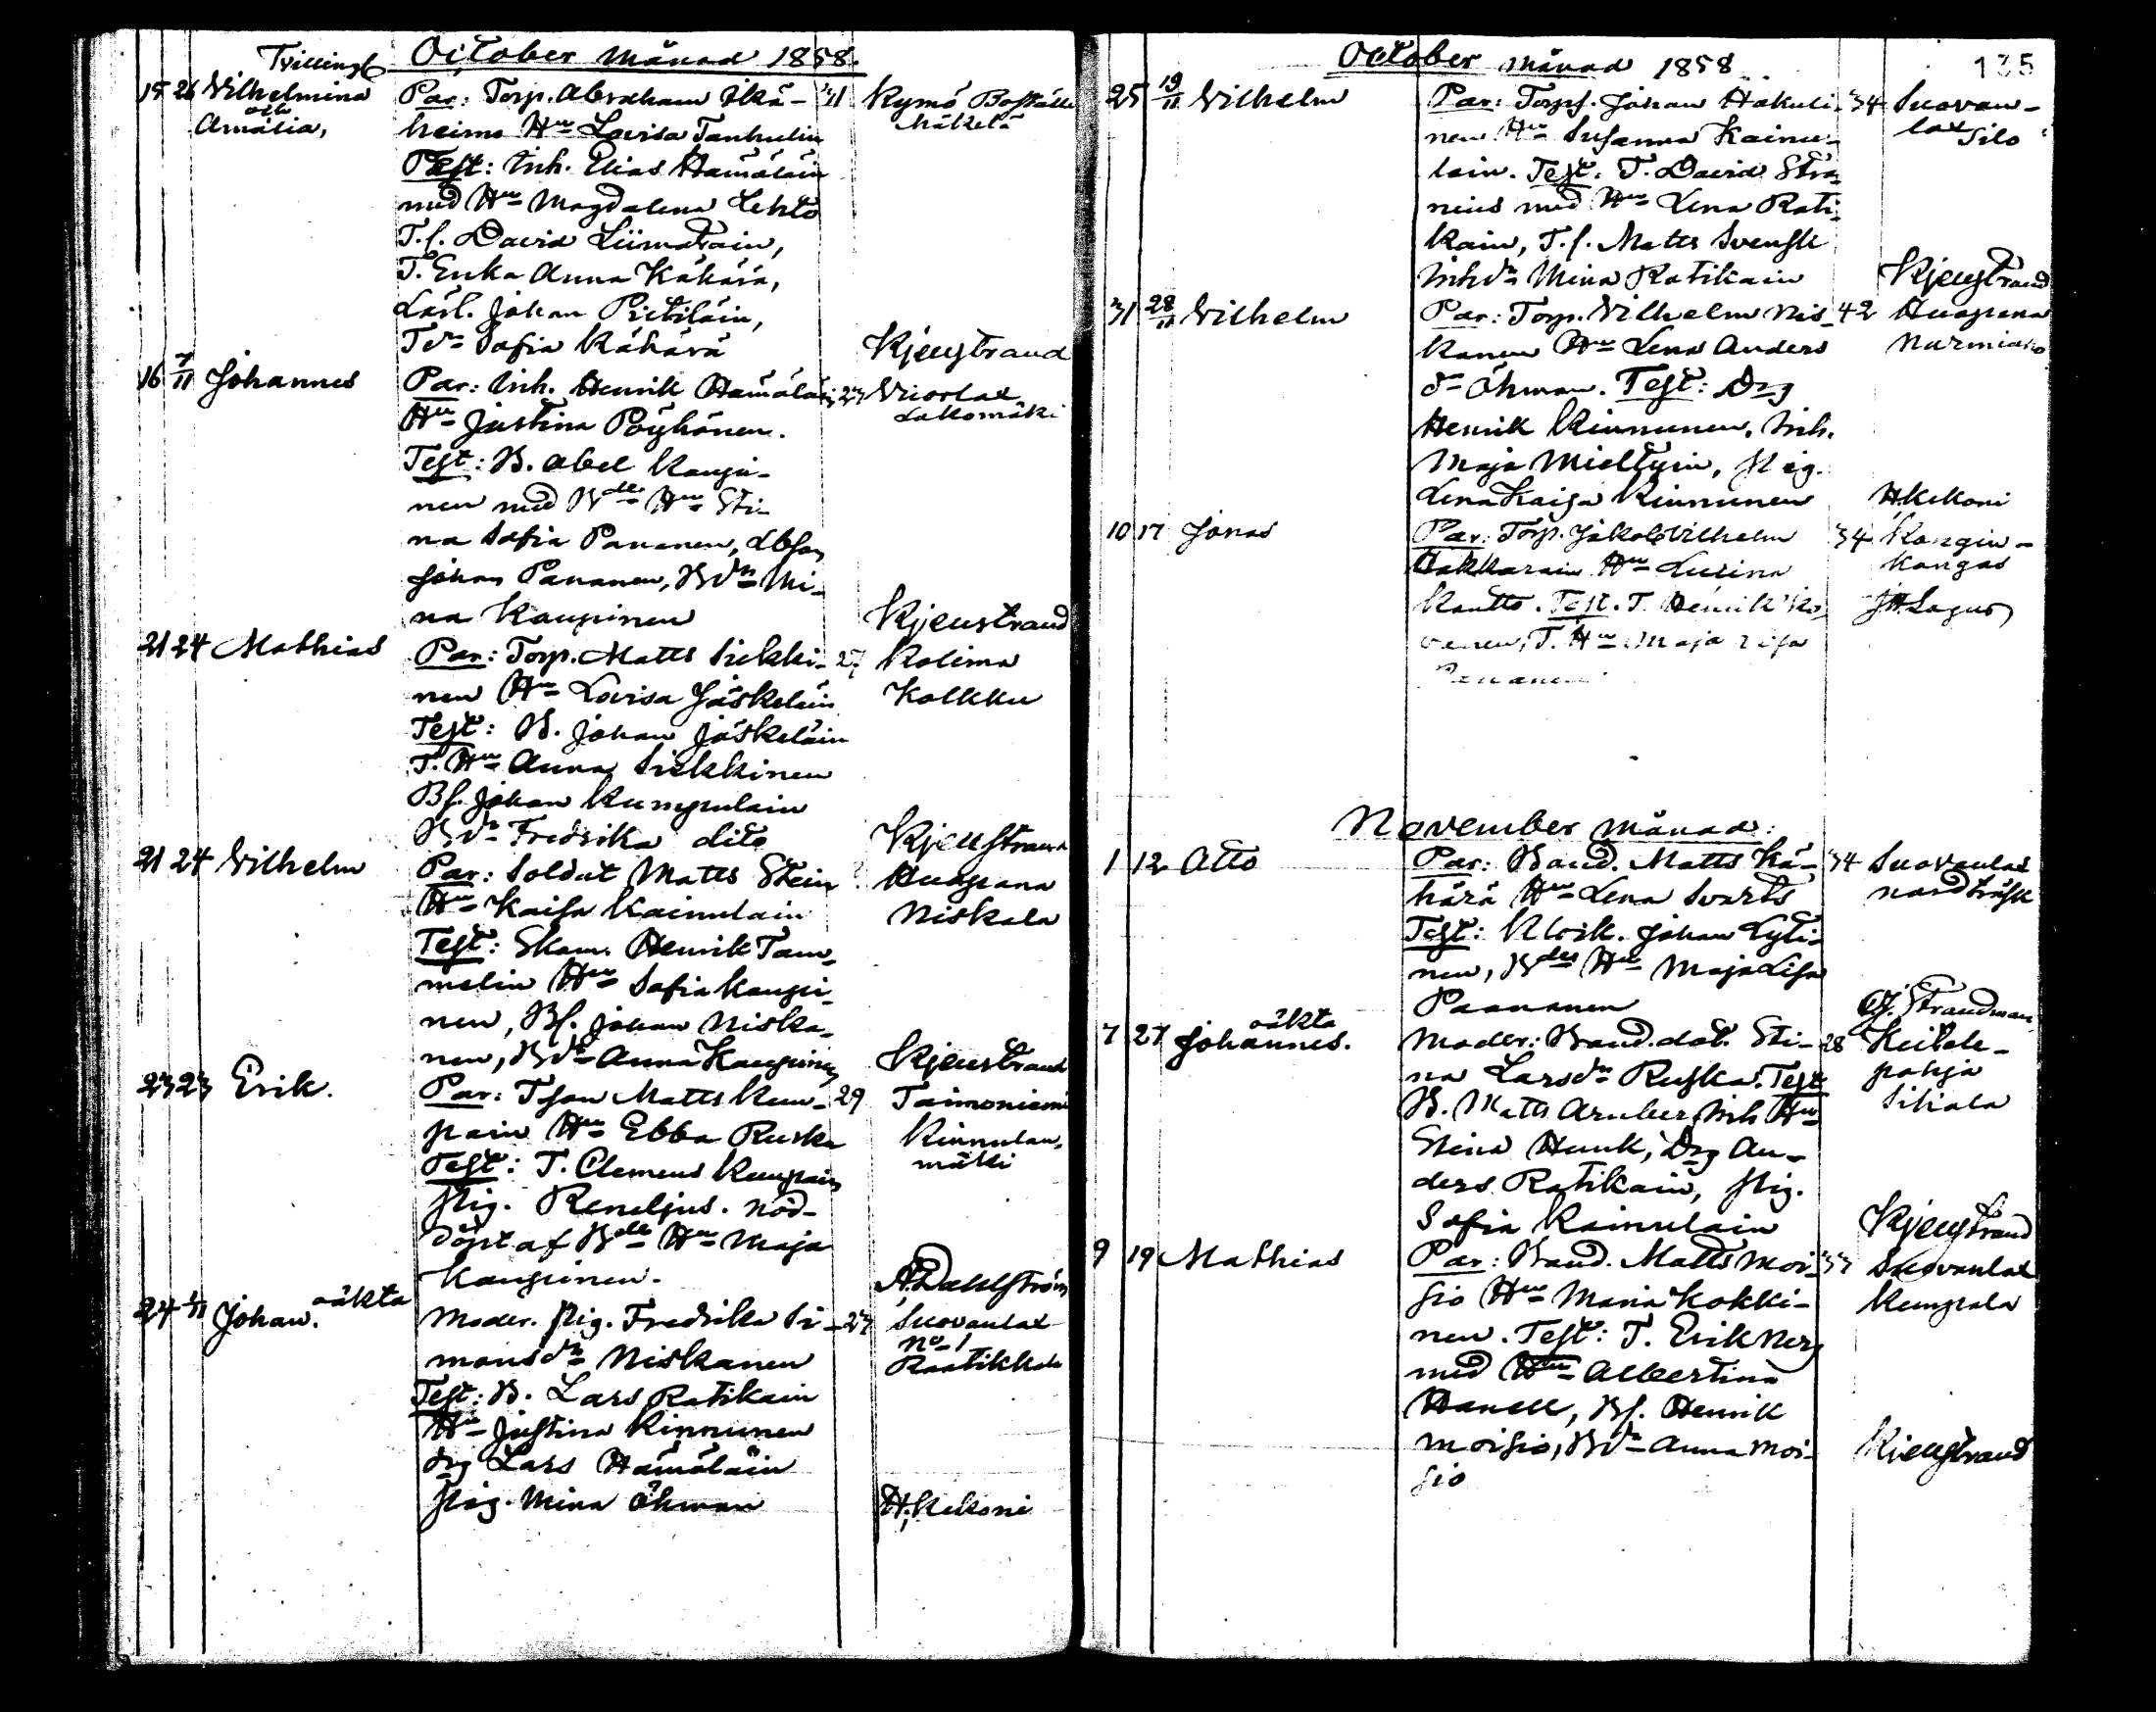 October månad 1858.
Tvillingb
15 26 Vilhelmina
och
Amalia,
Par: Torp. Abraham Ikä- 31
heimo Hu Lovisa Tanhulin
Test: Inh. Elias Hämäläin
med Hu Magdalena Lehto
T.s. David Liimatain,
T. Enka Anna Kähärä,
Lärl. Johan Pietiläin,
Tdr Sofia Kähärä
Kymö Boställe
Mäkelä
Kjenstrand
16 7/11 Johannes
Par: Inh. Henrik Hämäläi 27
Hu Justina Pöyhönen.
Test: B. Abel Kaupi-
nen med Bde Hu Sti-
na Sofia Pananen, Dbson
Johan Pananen, Bdr Mi-
na Kaupinen
Vuoslax
Lakomäki
Kjenstrand
21 24 Mathias
Par: Torp. Matts Siekki- 27
nen Hu Lovisa Jäskeläin
Test: B. Johan Jäskeläin
T. Hu Anna Siekkinen
Bs. Johan Kumpulain
Bdr Fredrika dito
Kolima
Kolkku
Kjenstrand
21 24 Vilhelm
Par: Soldat Matts Stein
Hu Kaisa Kainulain
Test: Skom. Henrik Tam-
melin Hu Sofia Kaupi-
nen, Bs. Johan Niska-
nen, Bdr Anna Kaupinen
Huopana
Niskala
Kjenstrand
23 23 Erik.
Par: Tson Matts Kum- 29
pain Hu Ebba Ruska
Test: T. Clemens Kumpain
pig. Reneljus. nöd-
döpt af Bde Hu Maja
Kaupinen.
Taimoniemi
Kinnulan-
mäki
A. Dahlström
24 1/11 Johan. oäkta
Moder. pig. Fredrika Si- 27
monsdr Niskanen
Test: B. Lars Ratikain
Hu Justina Kinnunen
drg Lars Hämäläin
pig. Mina Öhman
Suovanlax
No 1
Raatikkala
H. Kekoni
October månad 1858
135
25 19/11 Vilhelm
Par: Torps. Johan Hakuli- 34
nen Hu Susanna Kainu-
lain. Test: T. David Stra-
neius med Hu Lena Rati-
kain, T.s. Matts Svensk
Inhdr Mina Ratikain
Suovan-
lax Silo
Kjenstrand
31 28/11 Vilhelm
Par: Torp. Vilhelm Nis- 42
kanen Hu Lena Anders
dr Öhman. Test: Drg
Henrik Kinnunen, Inh.
Maja Mieltyin, pig.
Lena Kaisa Kinnunen
Huopana
Nurmiaho
H. Kekoni
10 17 Jonas
Par: Torp. Jakob Vilhelm 34
Hakkarain Hu Lusina
Kautto. Test. T. Henrik Ko-
venen, T. Hu Maja Lisa
Pananen
Kangin-
kangas
J.H. Lagus
November månad:
1 12 Otto
Par: Band. Matts Kä- 34
härä Hu Lena Svarts
Test: Klock. Johan Lyti-
nen, Bdes Hu Maja Lisa
Paananen
Suovanlax
nandträsk
G.J. Strandman
7 27 Johannes. oäkta
Moder: Band. dot. Sti- 28
na Larsdr Ruska. Test
B. Matts Arnber, Inh Hu
Stina Hunk, Drg An-
ders Ratikain, pig.
Sofia Kainulain
Keitele-
pohja
Sikala
Kjenstrand
9 19 Mathias
Par: Band. Matts Moi- 37
sio Hu Maria Kokki-
nen. Test: T. Erik Nerg
med Hu Albertina
Hanell, Bs. Henrik
Moisio, Bdr Anna Moi-
sio
Suovanlax
Kumpala
Kjenstrand